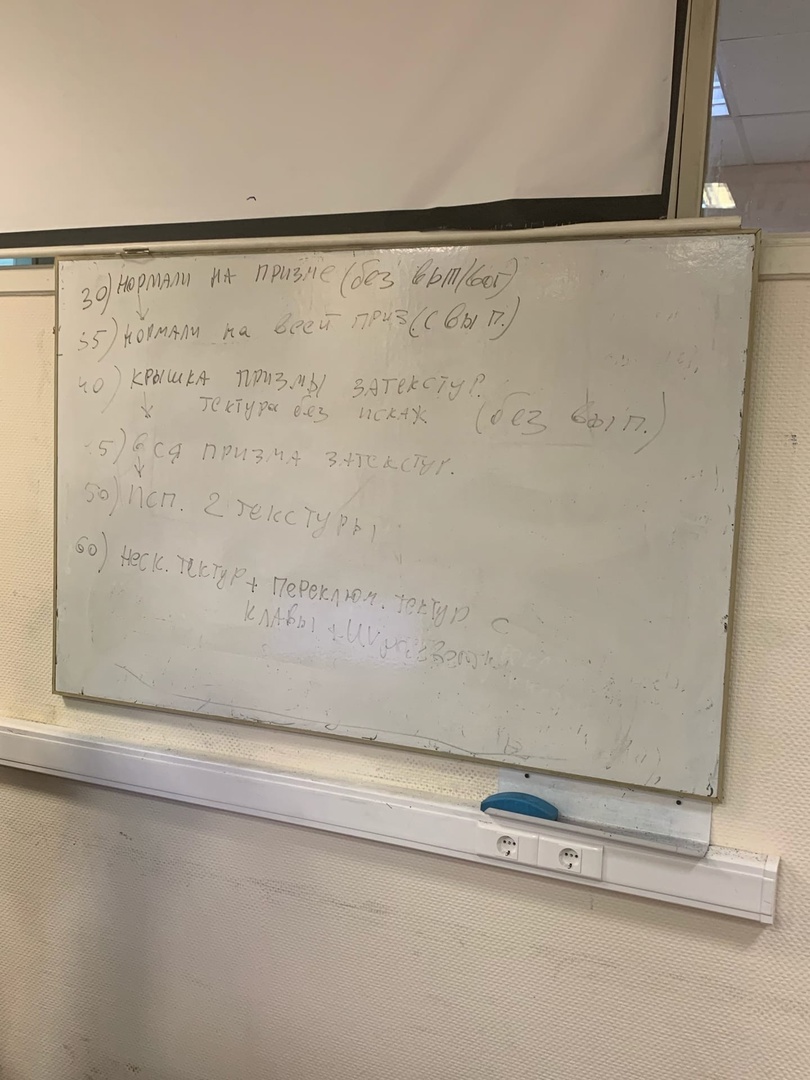 30) НОРМАЛИ НА ПРИЗМЕ (без вып/вог)
35) НОРМАЛИ на всей ПРИЗ (с вып.)
40) КРЫШКА ПРИЗМЫ ЗАТЕКСТУР.
тектура без искаж (без вып.)
5) вся ПРИЗМА ЗАТЕКСТУР.
50) ИСП. 2 ТЕКСТУРЫ
60) Неск. тектур + переключ. тектур с
клавы +